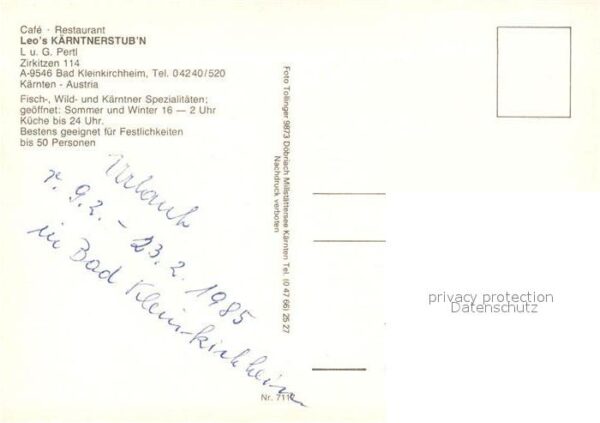 Café · Restaurant
Leo's KÄRNTNERSTUB'N
L u. G. Pertl
Zirkitzen 114
A-9546 Bad Kleinkirchheim, Tel. 04240/520
Kärnten - Austria
Fisch-, Wild- und Kärntner Spezialitäten;
geöffnet: Sommer und Winter 16 — 2 Uhr
Küche bis 24 Uhr.
Bestens geeignet für Festlichkeiten
bis 50 Personen
Urlaub
v. 9.2. - 23.2. 1985
in Bad Kleinkirchheim
Foto Tollinger 9873 Döbriach Millstättersee Kärnten Tel. (0 47 66) 25 27
Nachdruck verboten
Nr.
privacy protection
Datenschutz